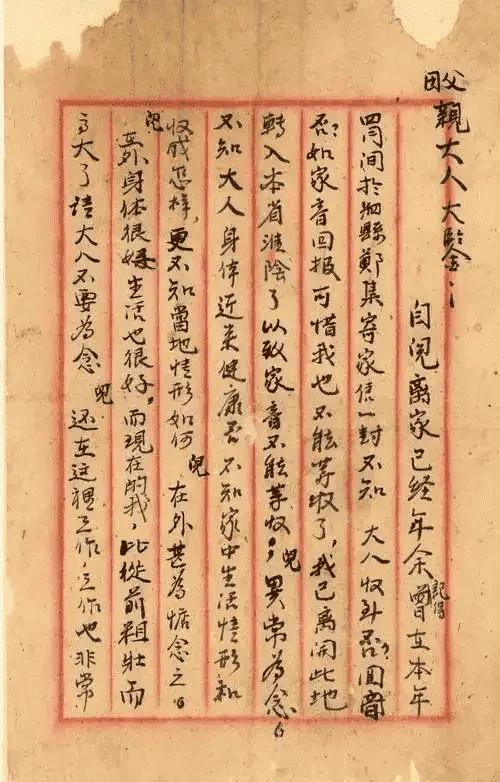 父母親大人大鑒：
自兒离家已经年余記得曾在本年
四月间於泗縣鄭集寄家信一封不知 大人收到否？回音
否？如家音回报可惜我也不能等收了，我已离開此地
轉入本省淮陰了以致家音不能等收，兒異常為念。
不知大人身体近来健康否不知家中生活情形和
收成怎样，更不知當地情形如何 兒在外甚為惦念之。
兒在外身体很好生活也很好，而现在的我，比從前粗壮而
高大了请大人不要為念 兒还在这裡工作，工作也非常